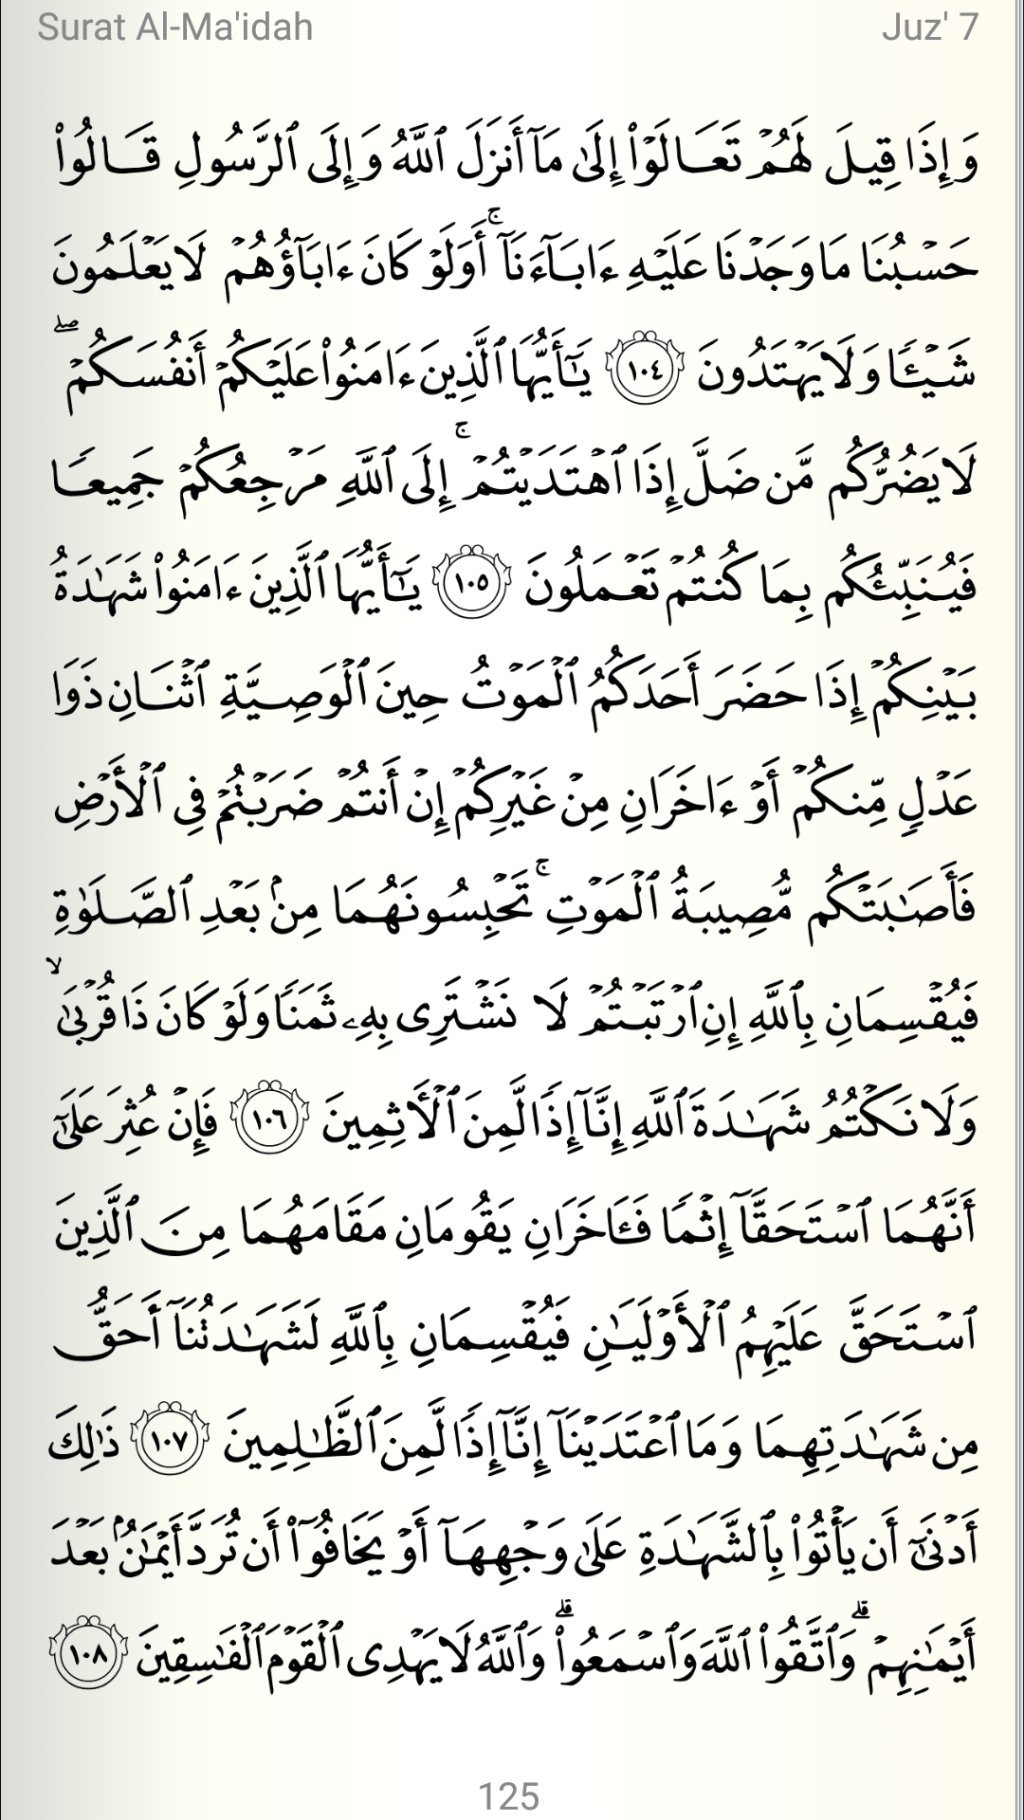 Surat Al-Ma'idah
Juz' 7
وَإِذَا قِيلَ لَهُمۡ تَعَالَوۡاْ إِلَىٰ مَآ أَنزَلَ ٱللَّهُ وَإِلَى ٱلرَّسُولِ قَالُواْ
حَسۡبُنَا مَا وَجَدۡنَا عَلَيۡهِ ءَابَآءَنَآۚ أَوَلَوۡ كَانَ ءَابَآؤُهُمۡ لَا يَعۡلَمُونَ
شَيۡـٔٗا وَلَا يَهۡتَدُونَ ١٠٤ يَـٰٓأَيُّهَا ٱلَّذِينَ ءَامَنُواْ عَلَيۡكُمۡ أَنفُسَكُمۡۖ
لَا يَضُرُّكُم مَّن ضَلَّ إِذَا ٱهۡتَدَيۡتُمۡۚ إِلَى ٱللَّهِ مَرۡجِعُكُمۡ جَمِيعٗا
فَيُنَبِّئُكُم بِمَا كُنتُمۡ تَعۡمَلُونَ ١٠٥ يَـٰٓأَيُّهَا ٱلَّذِينَ ءَامَنُواْ شَهَٰدَةُ
بَيۡنِكُمۡ إِذَا حَضَرَ أَحَدَكُمُ ٱلۡمَوۡتُ حِينَ ٱلۡوَصِيَّةِ ٱثۡنَانِ ذَوَا
عَدۡلٖ مِّنكُمۡ أَوۡ ءَاخَرَانِ مِنۡ غَيۡرِكُمۡ إِنۡ أَنتُمۡ ضَرَبۡتُمۡ فِي ٱلۡأَرۡضِ
فَأَصَٰبَتۡكُم مُّصِيبَةُ ٱلۡمَوۡتِۚ تَحۡبِسُونَهُمَا مِنۢ بَعۡدِ ٱلصَّلَوٰةِ
فَيُقۡسِمَانِ بِٱللَّهِ إِنِ ٱرۡتَبۡتُمۡ لَا نَشۡتَرِي بِهِۦ ثَمَنٗا وَلَوۡ كَانَ ذَا قُرۡبَىٰۙ
وَلَا نَكۡتُمُ شَهَٰدَةَ ٱللَّهِ إِنَّآ إِذٗا لَّمِنَ ٱلۡأٓثِمِينَ ١٠٦ فَإِنۡ عُثِرَ عَلَىٰٓ
أَنَّهُمَا ٱسۡتَحَقَّآ إِثۡمٗا فَـَٔاخَرَانِ يَقُومَانِ مَقَامَهُمَا مِنَ ٱلَّذِينَ
ٱسۡتَحَقَّ عَلَيۡهِمُ ٱلۡأَوۡلَيَٰنِ فَيُقۡسِمَانِ بِٱللَّهِ لَشَهَٰدَتُنَآ أَحَقُّ
مِن شَهَٰدَتِهِمَا وَمَا ٱعۡتَدَيۡنَآ إِنَّآ إِذٗا لَّمِنَ ٱلظَّـٰلِمِينَ ١٠٧ ذَٰلِكَ
أَدۡنَىٰٓ أَن يَأۡتُواْ بِٱلشَّهَٰدَةِ عَلَىٰ وَجۡهِهَآ أَوۡ يَخَافُوٓاْ أَن تُرَدَّ أَيۡمَٰنُۢ بَعۡدَ
أَيۡمَٰنِهِمۡۗ وَٱتَّقُواْ ٱللَّهَ وَٱسۡمَعُواْۗ وَٱللَّهُ لَا يَهۡدِي ٱلۡقَوۡمَ ٱلۡفَٰسِقِينَ ١٠٨
125